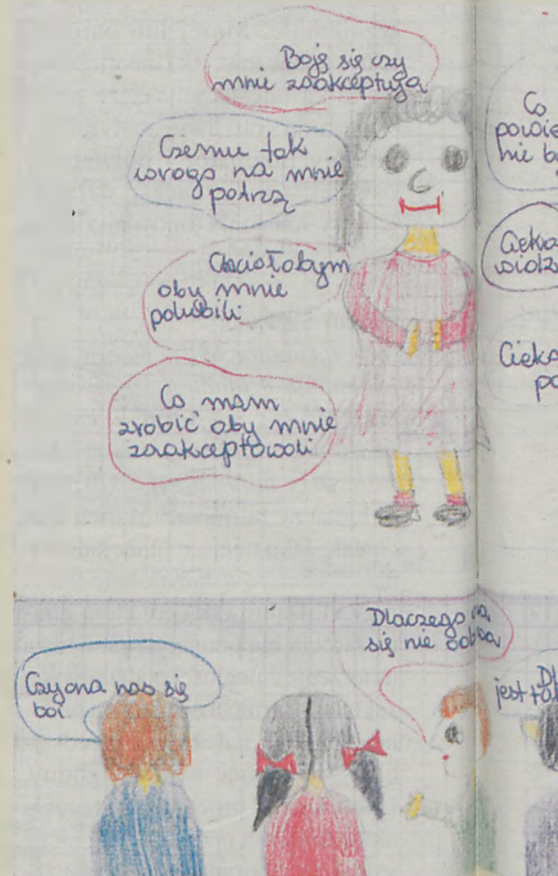 Boję się czy
mnie zaakceptują
Czemu tak
wrogo na mnie
patrzą
Chciałabym
aby mnie
polubili
Co mam
zrobić aby mnie
zaakceptowali
Co
powie
nie b
Cieka
widz
Cieka
po
Dlaczego ona
się nie odzywa
Czy ona nas się
boi
Dl
jest ta